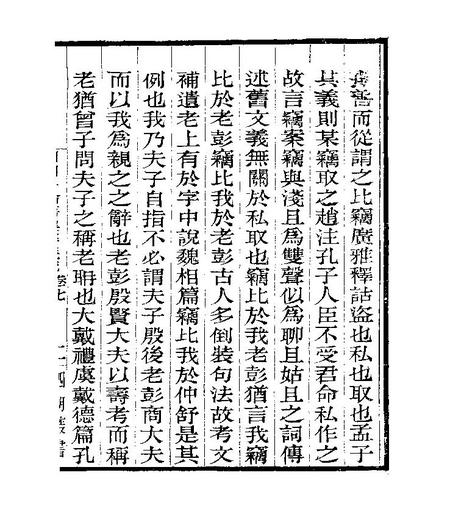 而從謂之比竊廣雅釋詁盜也私也取也孟子
其義則某竊取之趙注孔子人臣不受君命私作之
故言竊案竊與淺且為雙聲似為聊且姑且之詞傳
述舊文義無關於私取也竊比於我老彭猶言我竊
比於老彭竊比我於老彭古人多倒裝句法故考文
補遺老上有於字中說魏相篇竊比我於仲舒是其
例也我乃夫子自指不必謂夫子殷後老彭商大夫
而以我為親之之辭也老彭殷賢大夫以壽考而稱
老猶曾子問夫子之稱老聃也大戴禮虞戴德篇孔
卷七